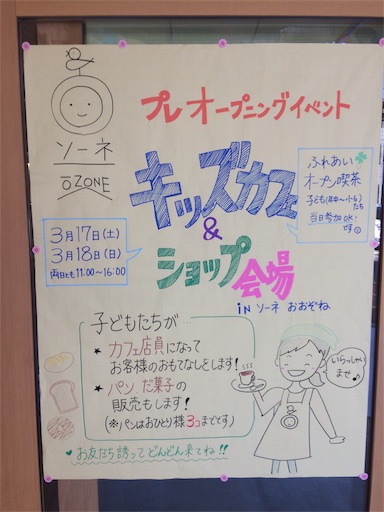 プレオープニングイベント
ソーネ
OZONE
キッズカフェ
&
ショップ会場
in ソーネ おおぞね
ふれあい
オープン喫茶
子ども(年中~小6)たち
当日参加OK
です
3月17日(土)
3月18日(日)
両日とも 11:00~16:00
子どもたちが…
★ カフェ店員になって
お客様のおもてなしをします!
★ パン だ菓子の
販売もします!
(※パンはおひとり様3コまでです)
いらっしゃい
ませ♪
♥お友だち誘ってどんどん来てね!!